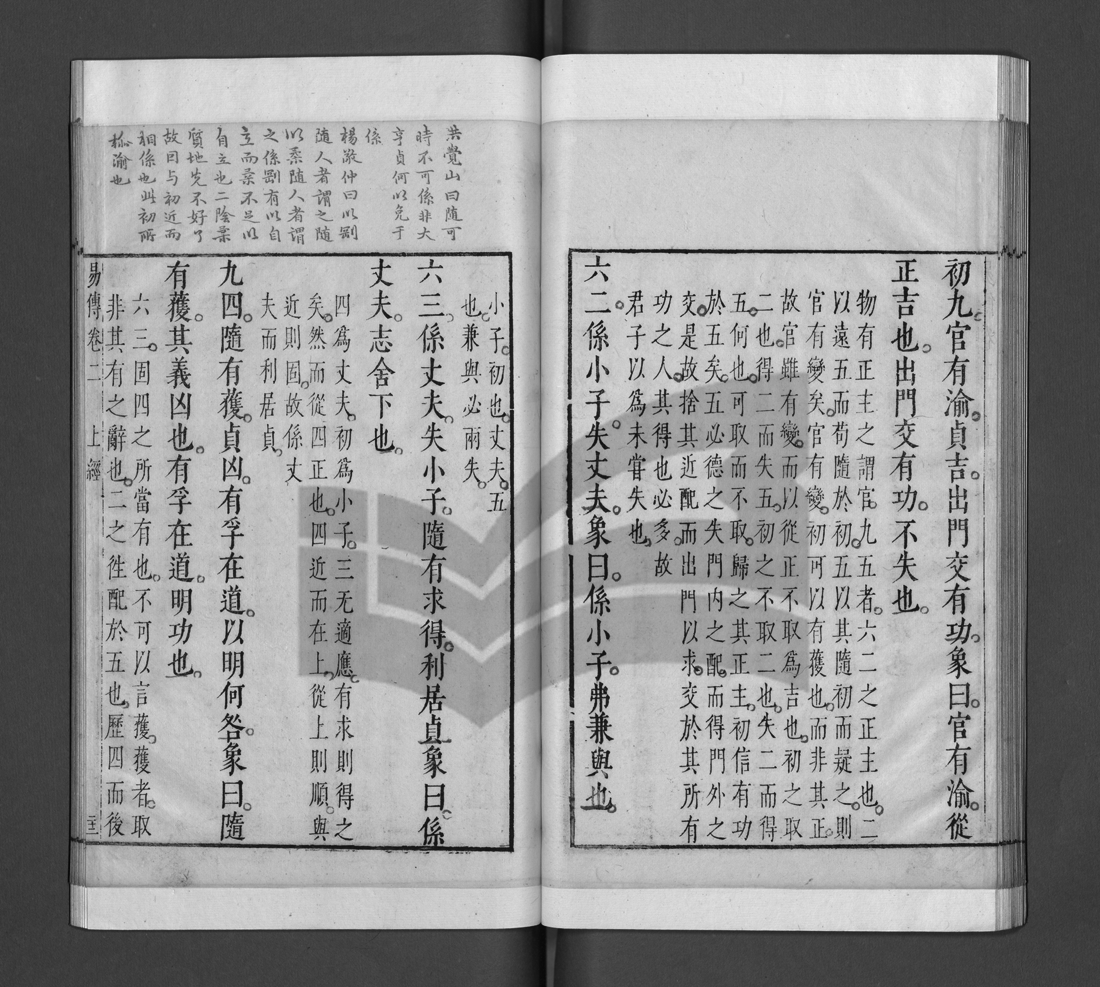 初九官有渝貞吉出門交有功象曰官有渝從
正吉也出門交有功不失也
物有正主之謂官九五者六二之正主也二
以遠五而苟隨於初五以其隨初而疑之則
官有變矣官有變初可以有獲也而非其正
故官雖有變而以從正不取為吉也初之取
二也得二而失五初之不取二也失二而得
五何也可取而不取歸之其正主初信有功
於五矣五必德之失門內之配而得門外之
交是故捨其近配而出門以求交於其所有
功之人其得也必多故
君子以為未甞失也
六二係小子失丈夫象曰係小子弗兼與也
洪覺山曰隨可
時不可係非大
亨貞何以免于
係
楊敬仲曰以剛
隨人者謂之隨
以柔隨人者謂
之係剛有以自
立而柔不足以
自立也二陰柔
質地先不好了
故因与初近而
相係也此初所
孤渝也
小子初也丈夫五
也兼與必兩失
六三係丈夫失小子隨有求得利居貞象曰係
丈夫志舍下也
四為丈夫初為小子三无適應有求則得之
矣然而從四正也四近而在上從上則順與
近則固故係丈
夫而利居貞
九四隨有獲貞凶有孚在道以明何咎象曰隨
有獲其義凶也有孚在道明功也
六三固四之所當有也不可以言獲獲者取
非其有之辭也二之徃配於五也歷四而後
易傳卷二 上經